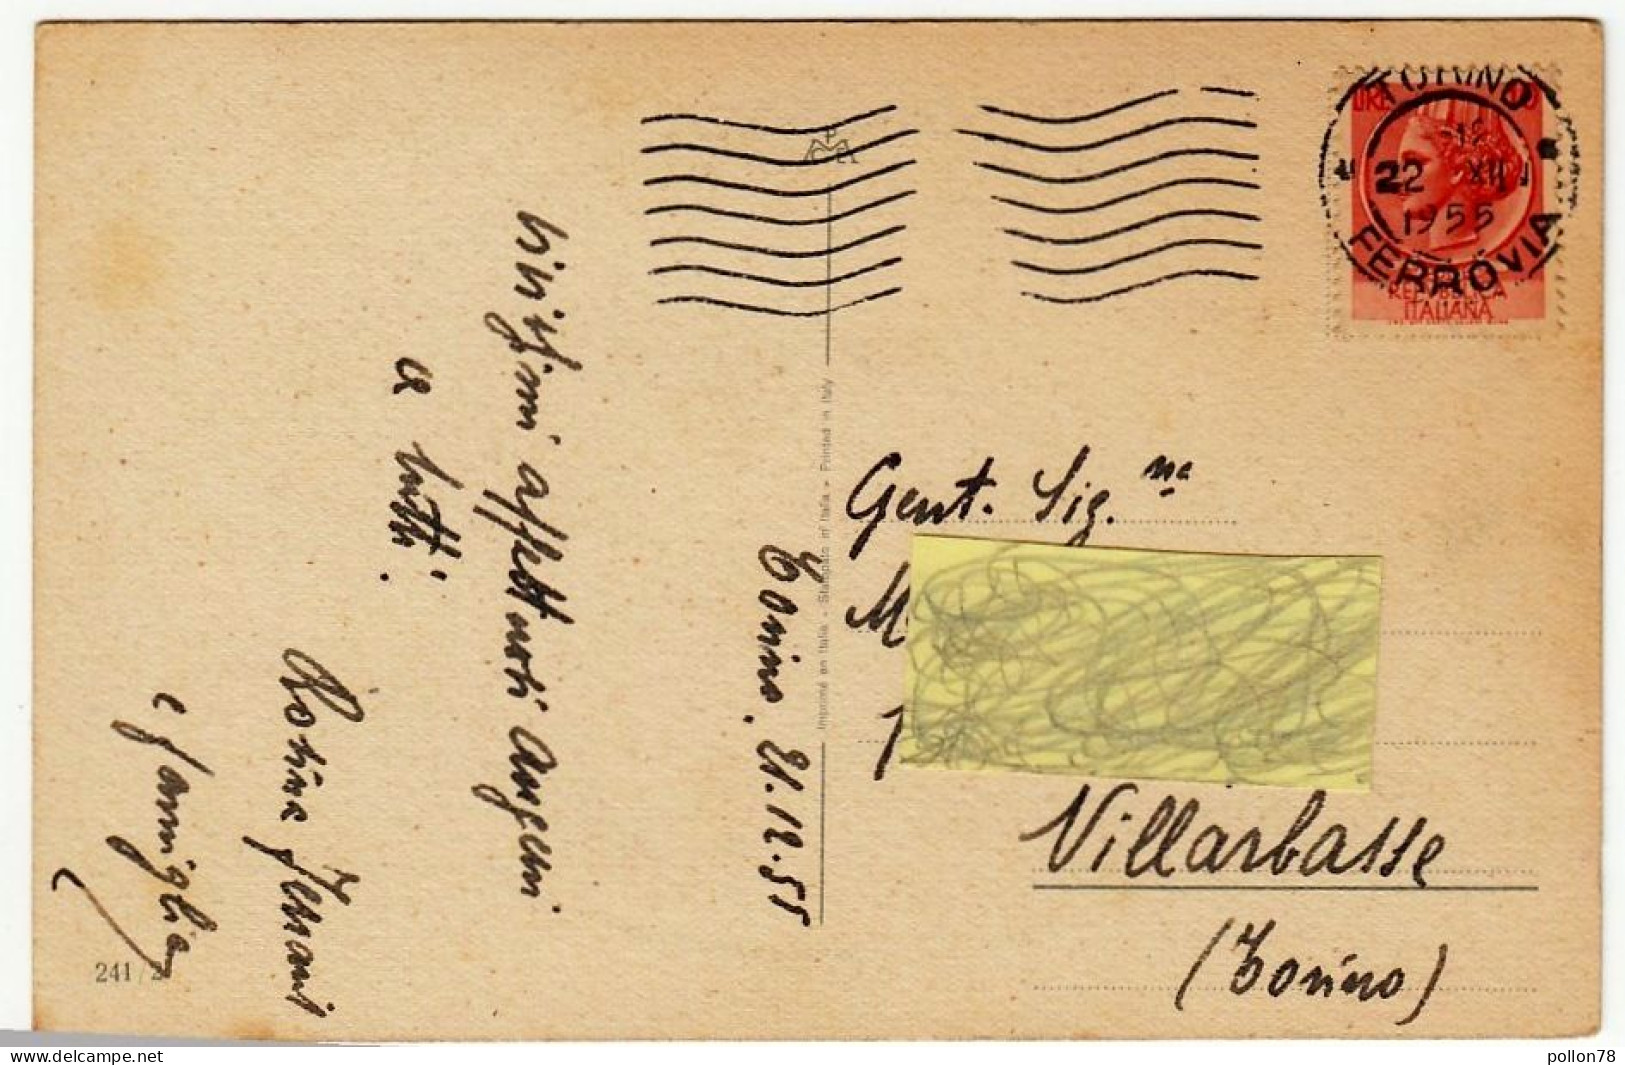 vivissimi affettuosi auguri
a tutti.
Rosina
e famiglia
Torino, 21.12.55
241/2
Imprimé en Italie - Stampato in Italia - Printed in Italy
TORINO
22 XII
1955
FERROVIA
LIRE
REPUBBLICA
ITALIANA
Gent. Sig.na
Villarbasse
(Torino)
www.delcampe.net
pollon78